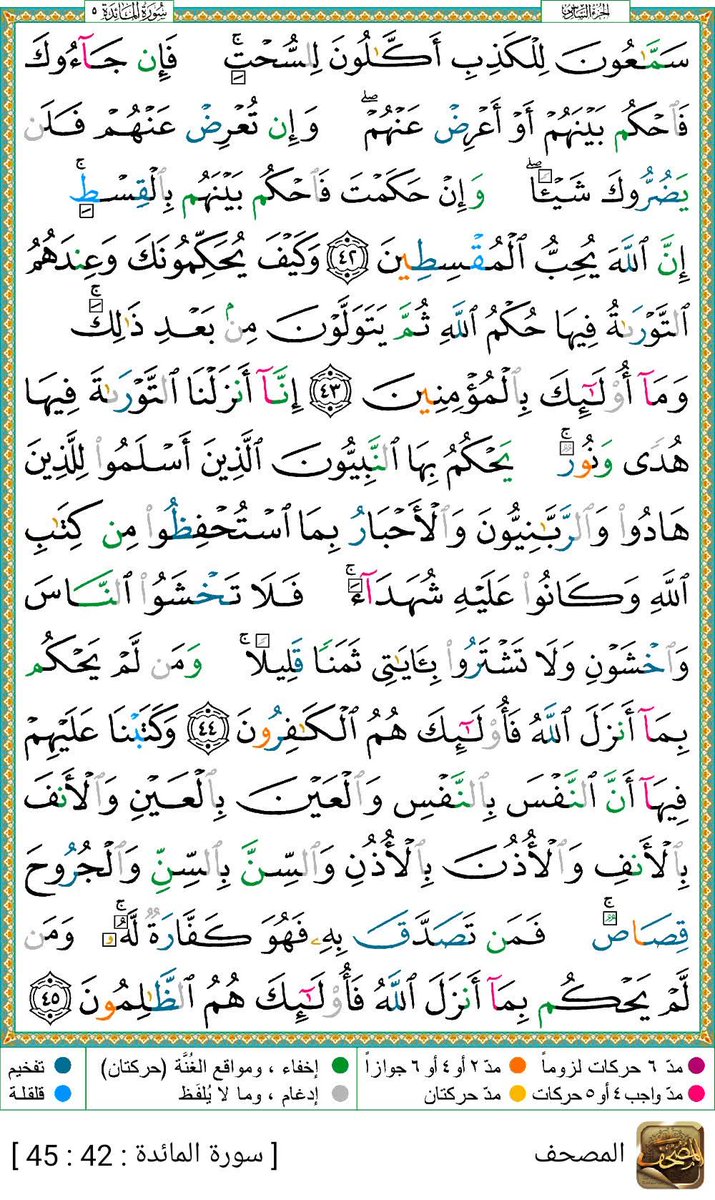 الجزء السادس
سُورَةُ المَائدة ٥
سَمَّٰعُونَ لِلۡكَذِبِ أَكَّٰلُونَ لِلسُّحۡتِۚ فَإِن جَآءُوكَ
فَٱحۡكُم بَيۡنَهُمۡ أَوۡ أَعۡرِضۡ عَنۡهُمۡۖ وَإِن تُعۡرِضۡ عَنۡهُمۡ فَلَن
يَضُرُّوكَ شَيۡـٔٗاۖ وَإِنۡ حَكَمۡتَ فَٱحۡكُم بَيۡنَهُم بِٱلۡقِسۡطِۚ
إِنَّ ٱللَّهَ يُحِبُّ ٱلۡمُقۡسِطِينَ ٤٢ وَكَيۡفَ يُحَكِّمُونَكَ وَعِندَهُمُ
ٱلتَّوۡرَىٰةُ فِيهَا حُكۡمُ ٱللَّهِ ثُمَّ يَتَوَلَّوۡنَ مِنۢ بَعۡدِ ذَٰلِكَۚ
وَمَآ أُوْلَٰٓئِكَ بِٱلۡمُؤۡمِنِينَ ٤٣ إِنَّآ أَنزَلۡنَا ٱلتَّوۡرَىٰةَ فِيهَا
هُدٗى وَنُورٞۚ يَحۡكُمُ بِهَا ٱلنَّبِيُّونَ ٱلَّذِينَ أَسۡلَمُواْ لِلَّذِينَ
هَادُواْ وَٱلرَّبَّٰنِيُّونَ وَٱلۡأَحۡبَارُ بِمَا ٱسۡتُحۡفِظُواْ مِن كِتَٰبِ
ٱللَّهِ وَكَانُواْ عَلَيۡهِ شُهَدَآءَۚ فَلَا تَخۡشَوُاْ ٱلنَّاسَ
وَٱخۡشَوۡنِ وَلَا تَشۡتَرُواْ بِـَٔايَٰتِي ثَمَنٗا قَلِيلٗاۚ وَمَن لَّمۡ يَحۡكُم
بِمَآ أَنزَلَ ٱللَّهُ فَأُوْلَٰٓئِكَ هُمُ ٱلۡكَٰفِرُونَ ٤٤ وَكَتَبۡنَا عَلَيۡهِمۡ
فِيهَآ أَنَّ ٱلنَّفۡسَ بِٱلنَّفۡسِ وَٱلۡعَيۡنَ بِٱلۡعَيۡنِ وَٱلۡأَنفَ
بِٱلۡأَنفِ وَٱلۡأُذُنَ بِٱلۡأُذُنِ وَٱلسِّنَّ بِٱلسِّنِّ وَٱلۡجُرُوحَ
قِصَاصٞۚ فَمَن تَصَدَّقَ بِهِۦ فَهُوَ كَفَّارَةٞ لَّهُۥۚ وَمَن
لَّمۡ يَحۡكُم بِمَآ أَنزَلَ ٱللَّهُ فَأُوْلَٰٓئِكَ هُمُ ٱلظَّٰلِمُونَ ٤٥
مدّ ٦ حركات لزوماً مدّ ٢ أو ٤ أو ٦ جوازاً إخفاء ، ومواقع الغُنَّة (حركتان) تفخيم
مدّ واجب ٤ أو ٥ حركات مدّ حركتان إدغام ، وما لا يُلفَظ قلقلة
المصحف
[ سورة المائدة : 42 : 45 ]